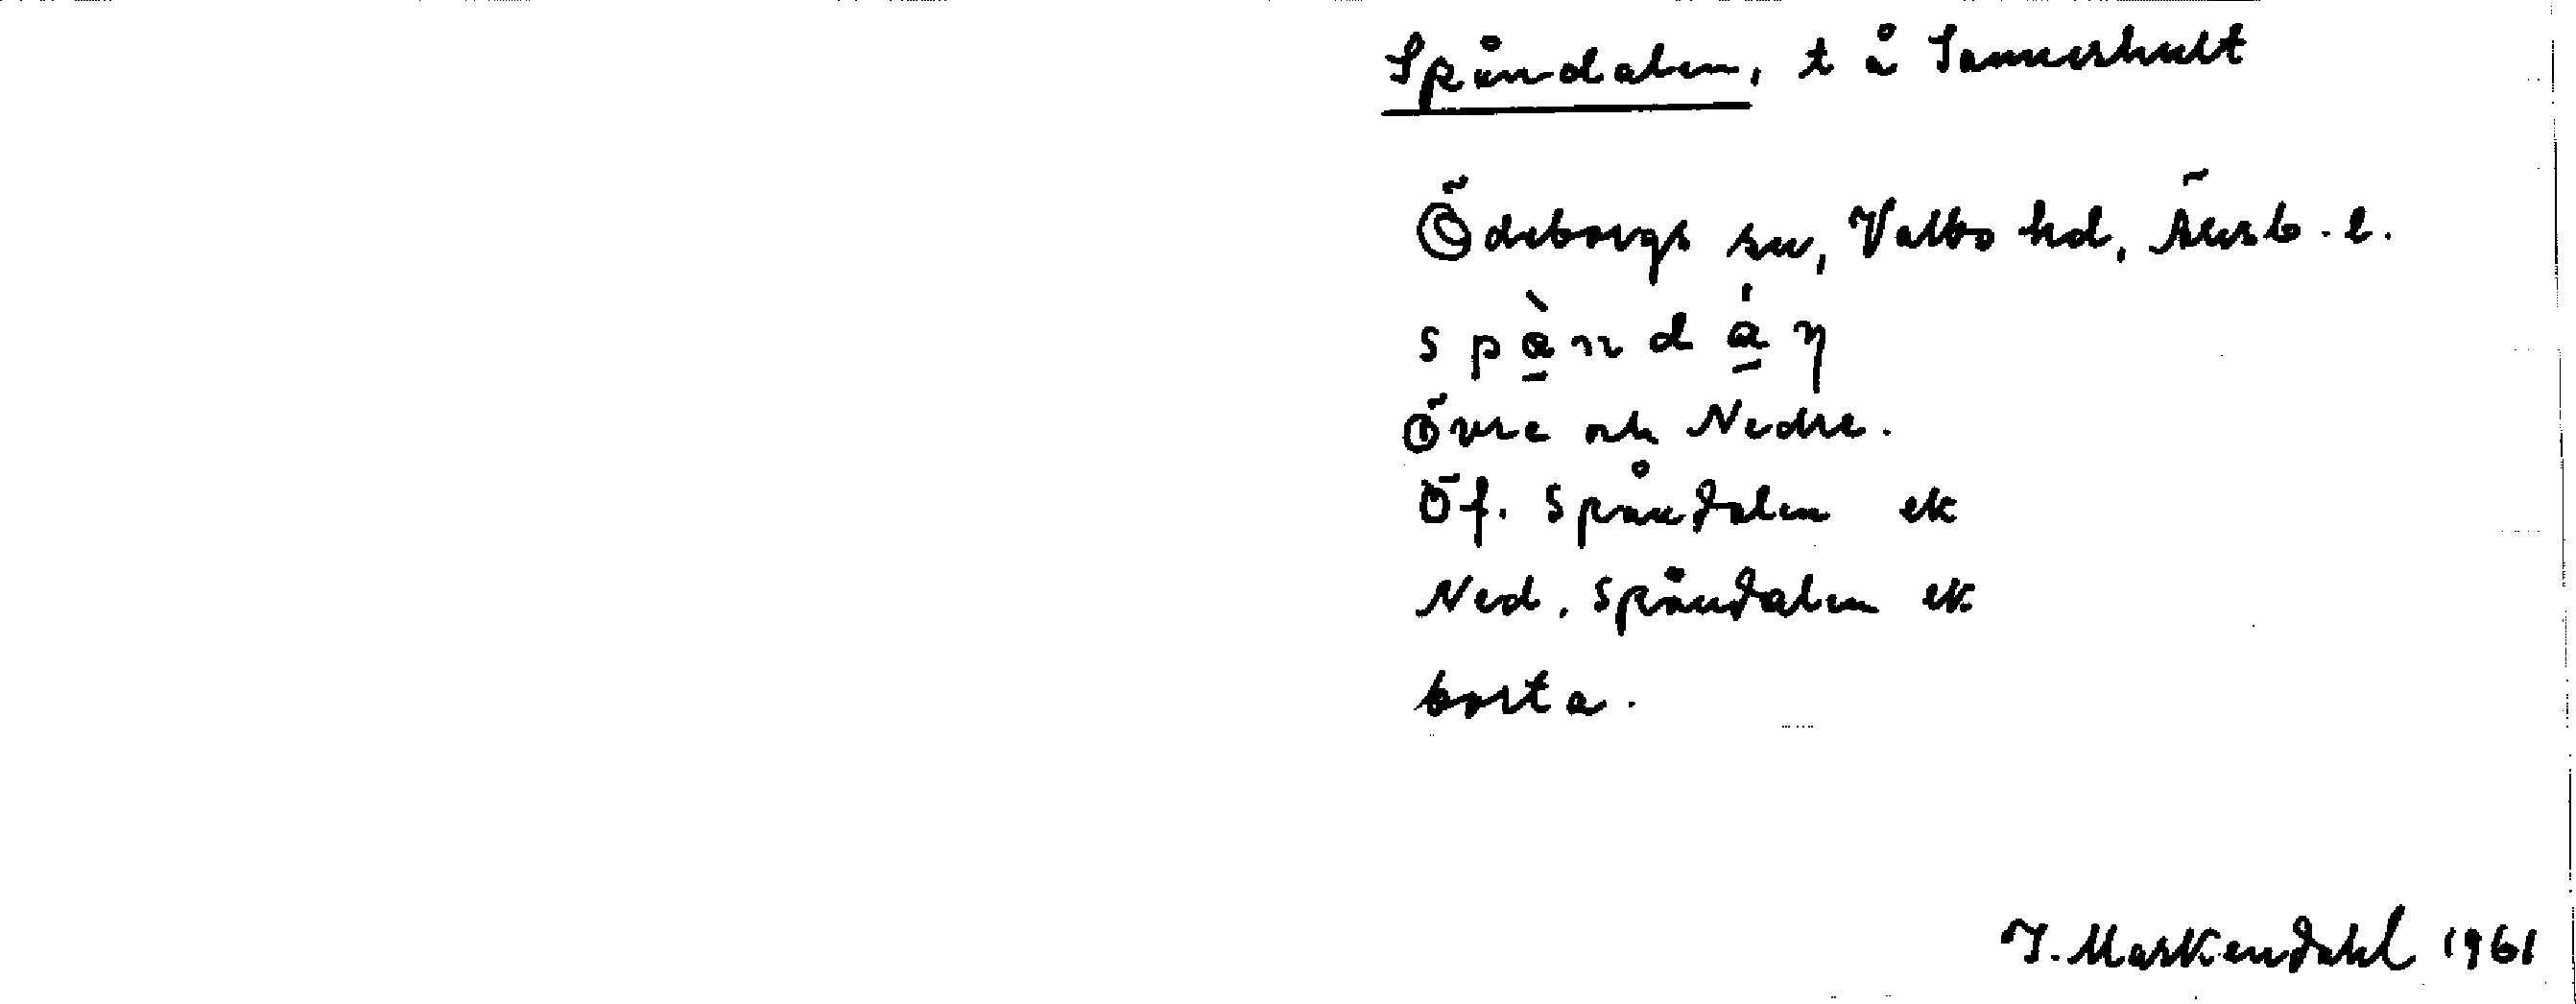 Spåndalen, t å Sannerhult
Ödeborgs sn, Valbo hd, Älvsb. l.
spàndáη
Övre och Nedre.
Öf. Spåndalen ek
Ned. Spåndalen ek
borta.
I. Markendahl 1961